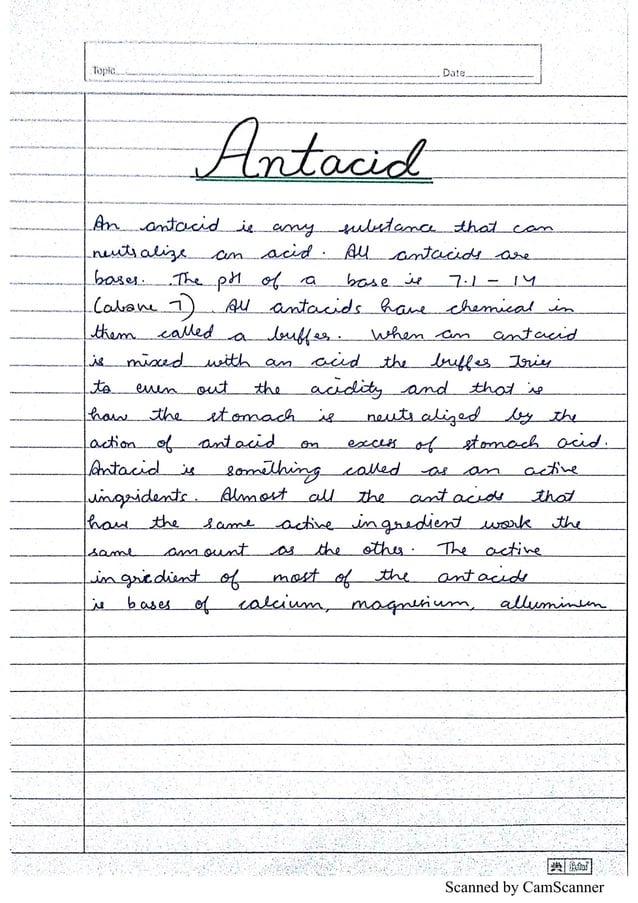 Topic
Date
Antacid
An antacid is any substance that can
neutralize an acid. All antacids are
bases. The pH of a base is 7.1 - 14
(above 7). All antacids have chemical in
them called a buffer. When an antacid
is mixed with an acid the buffer tries
to even out the acidity and that is
how the stomach is neutralized by the
action of antacid on excess of stomach acid.
Antacid is something called as an active
ingridents. Almost all the antacids that
have the same active ingredient work the
same amount as the other. The active
ingredient of most of the antacids
is bases of calcium, magnesium, alluminium
Scanned by CamScanner